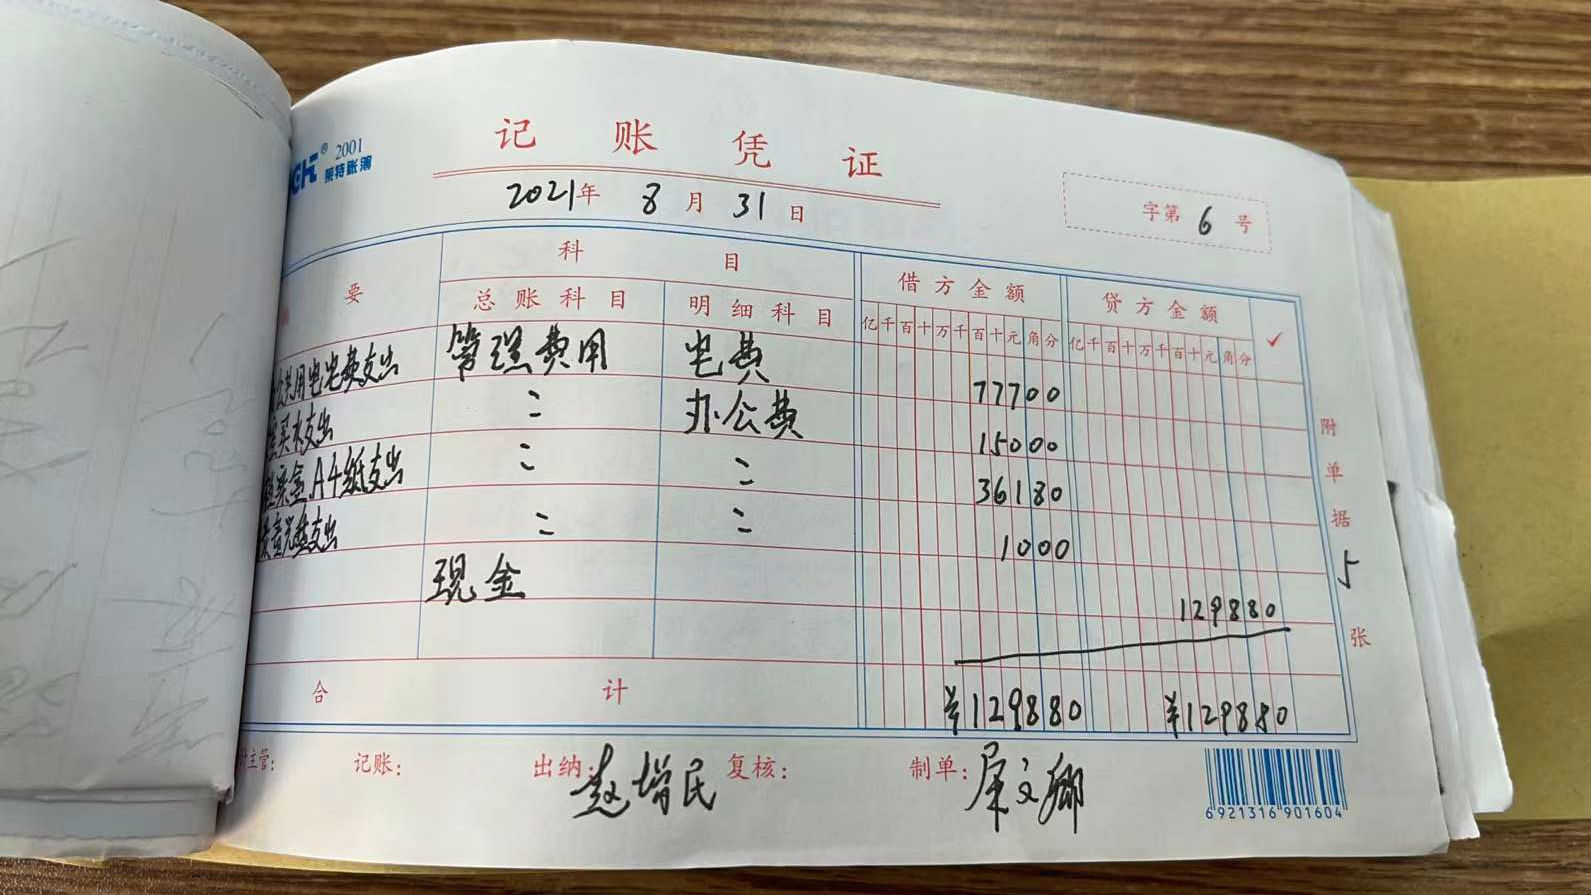 记账凭证
® 2001
莱特账簿
2021年 8月 31日
字第 6 号
要 科目 借方金额 贷方金额 ✓
总账科目 明细科目 亿千百十万千百十元角分 亿千百十万千百十元角分
公共用电电费支出 管理费用 电费 77700
买水支出 〃 办公费 15000
A4纸支出 〃 〃 36180
支出 〃 〃 1000
现金 129880
合计 ¥129880 ¥129880
附单据 5 张
主管: 记账: 出纳: 赵增民 复核: 制单: 屈文卿
6 921316 901604